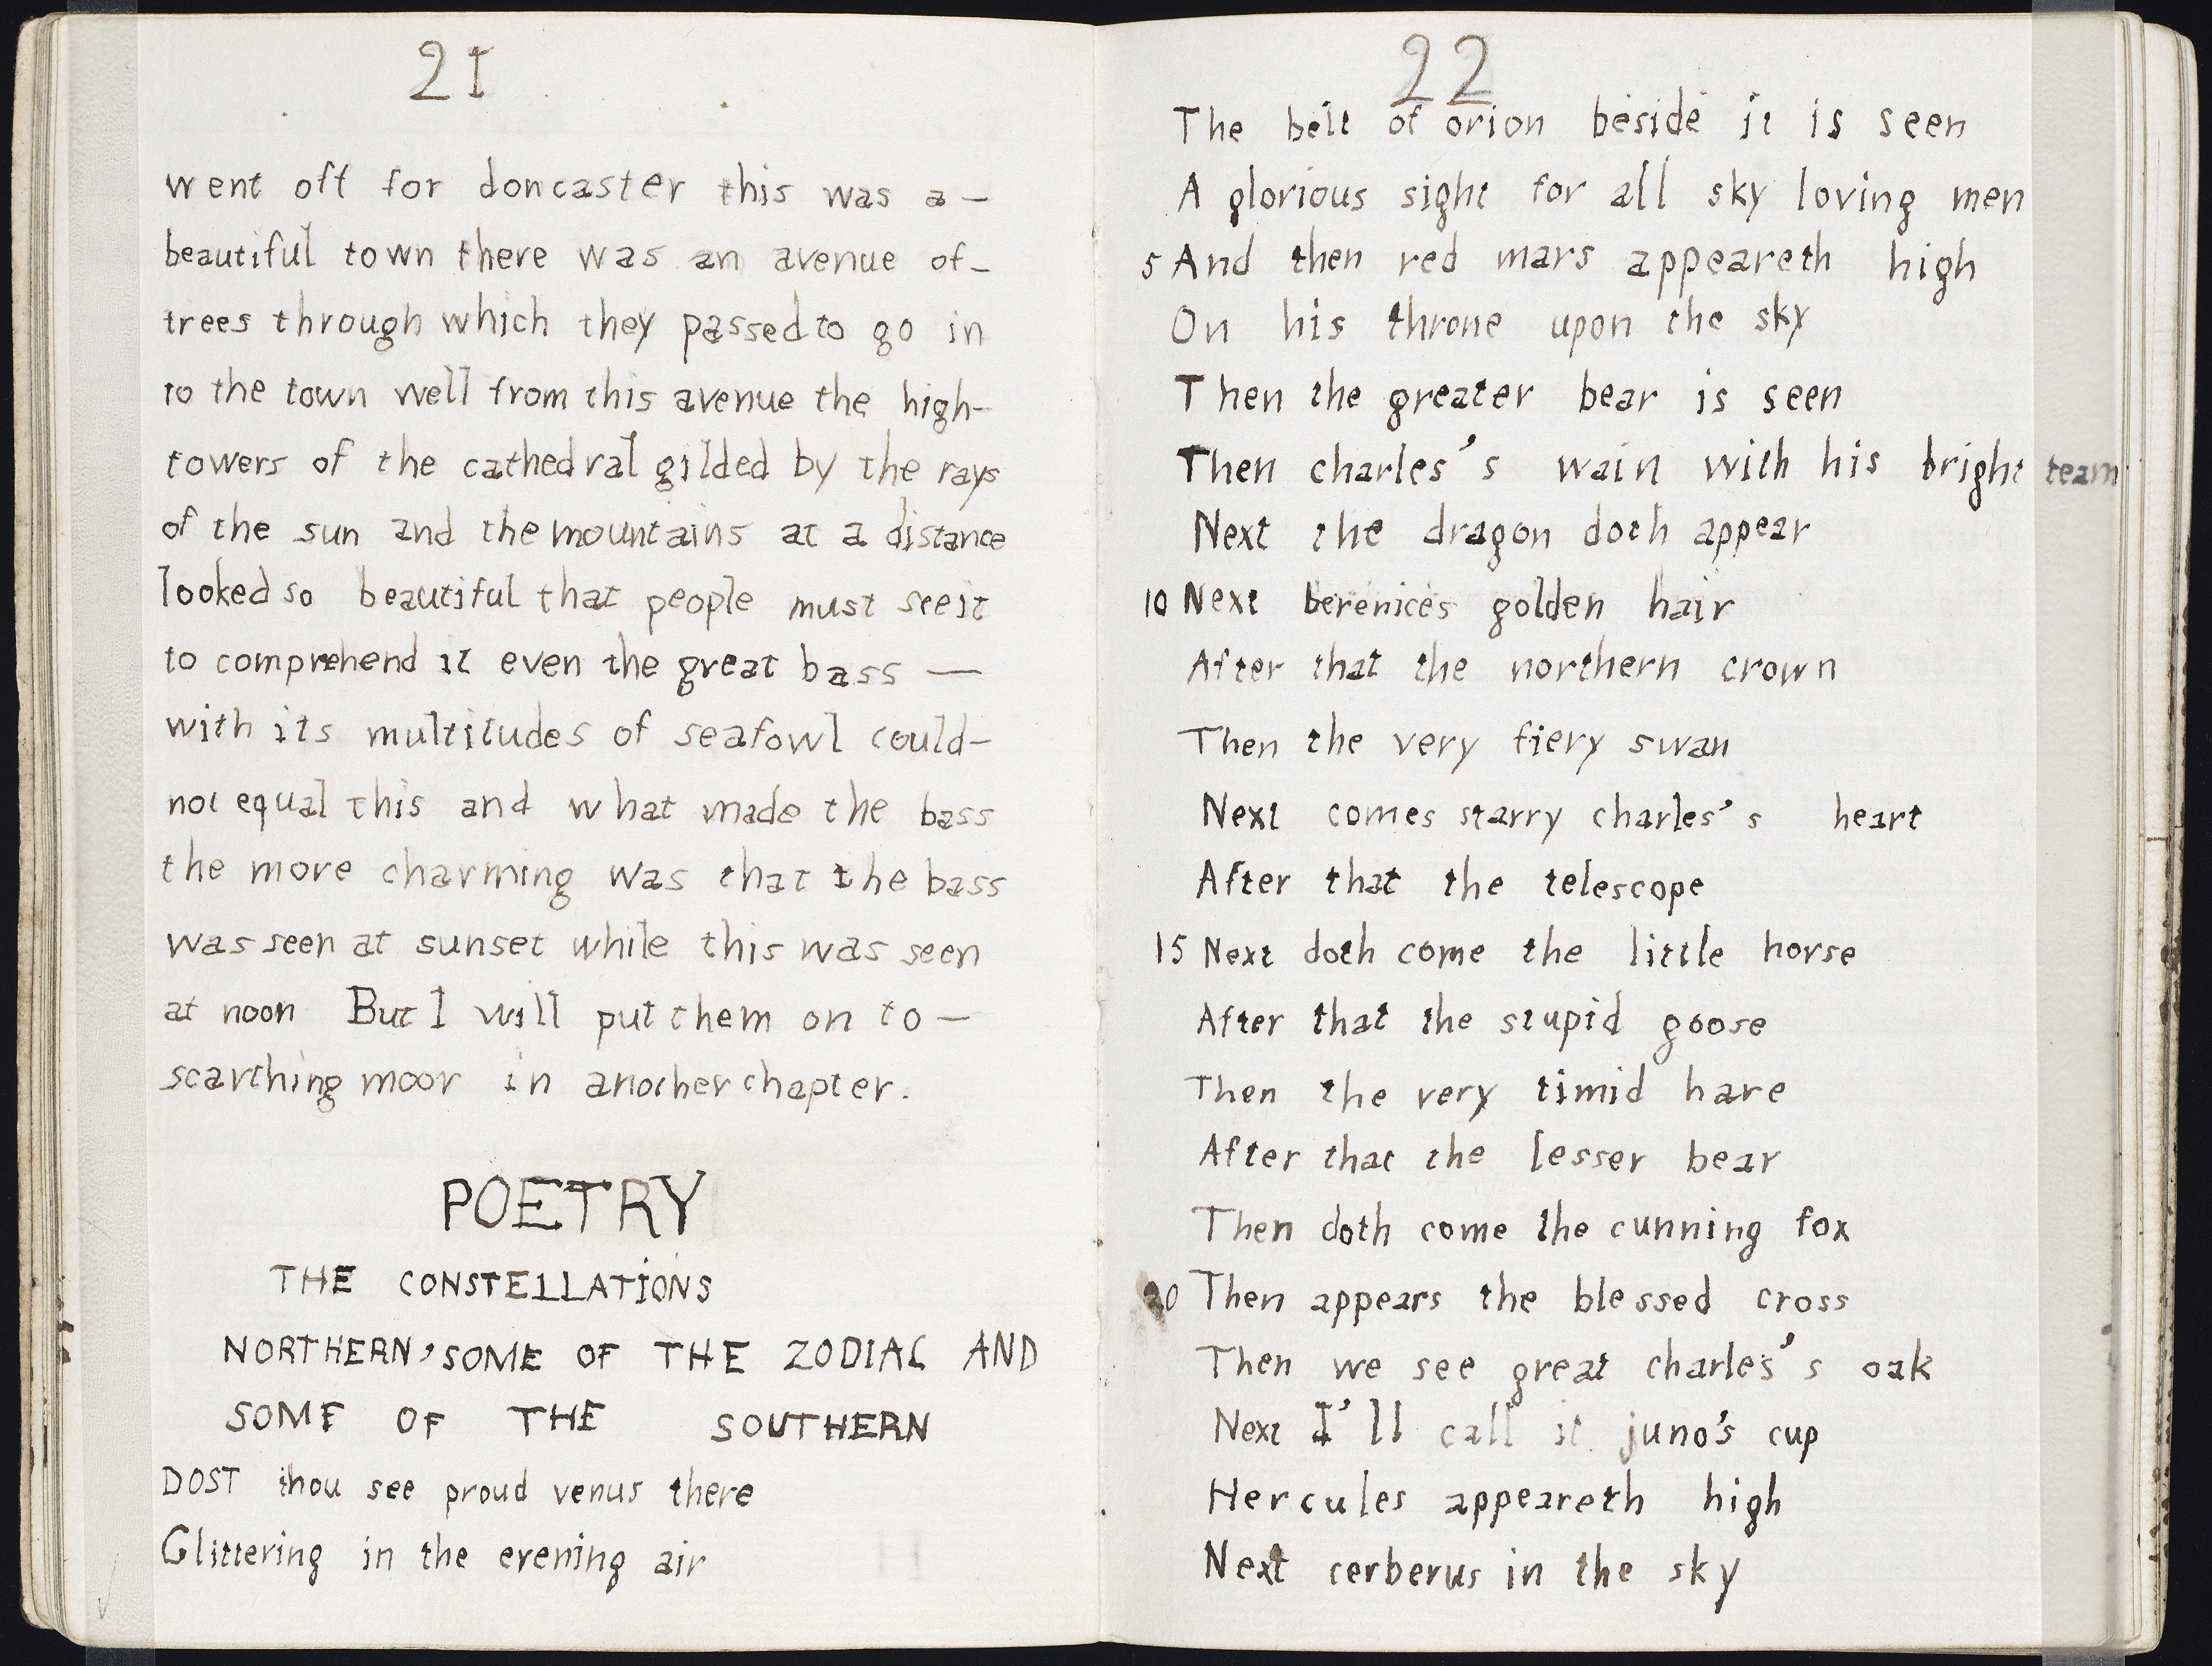 21
went off for doncaster this was a —
beautiful town there was an avenue of —
trees through which they passed to go in
to the town well from this avenue the high-
towers of the cathedral gilded by the rays
of the sun and the mountains at a distance
looked so beautiful that people must see it
to comprehend it even the great bass —
with its multitudes of seafowl could—
not equal this and what made the bass
the more charming was that the bass
was seen at sunset while this was seen
at noon But I will put them on to —
scarthing moor in another chapter.
POETRY
THE CONSTELLATIONS
NORTHERN, SOME OF THE ZODIAC AND
SOME OF THE SOUTHERN
DOST thou see proud venus there
Glittering in the evening air
22
The belt of orion beside it is seen
A glorious sight for all sky loving men
5 And then red mars appeareth high
On his throne upon the sky
Then the greater bear is seen
Then charles's wain with his bright team
Next the dragon doth appear
10 Next berenice's golden hair
After that the northern crown
Then the very fiery swan
Next comes starry charles's heart
After that the telescope
15 Next doth come the little horse
After that the stupid goose
Then the very timid hare
After that the lesser bear
Then doth come the cunning fox
20 Then appears the blessed cross
Then we see great charles's oak
Next I'll call it juno's cup
Hercules appeareth high
Next cerberus in the sky